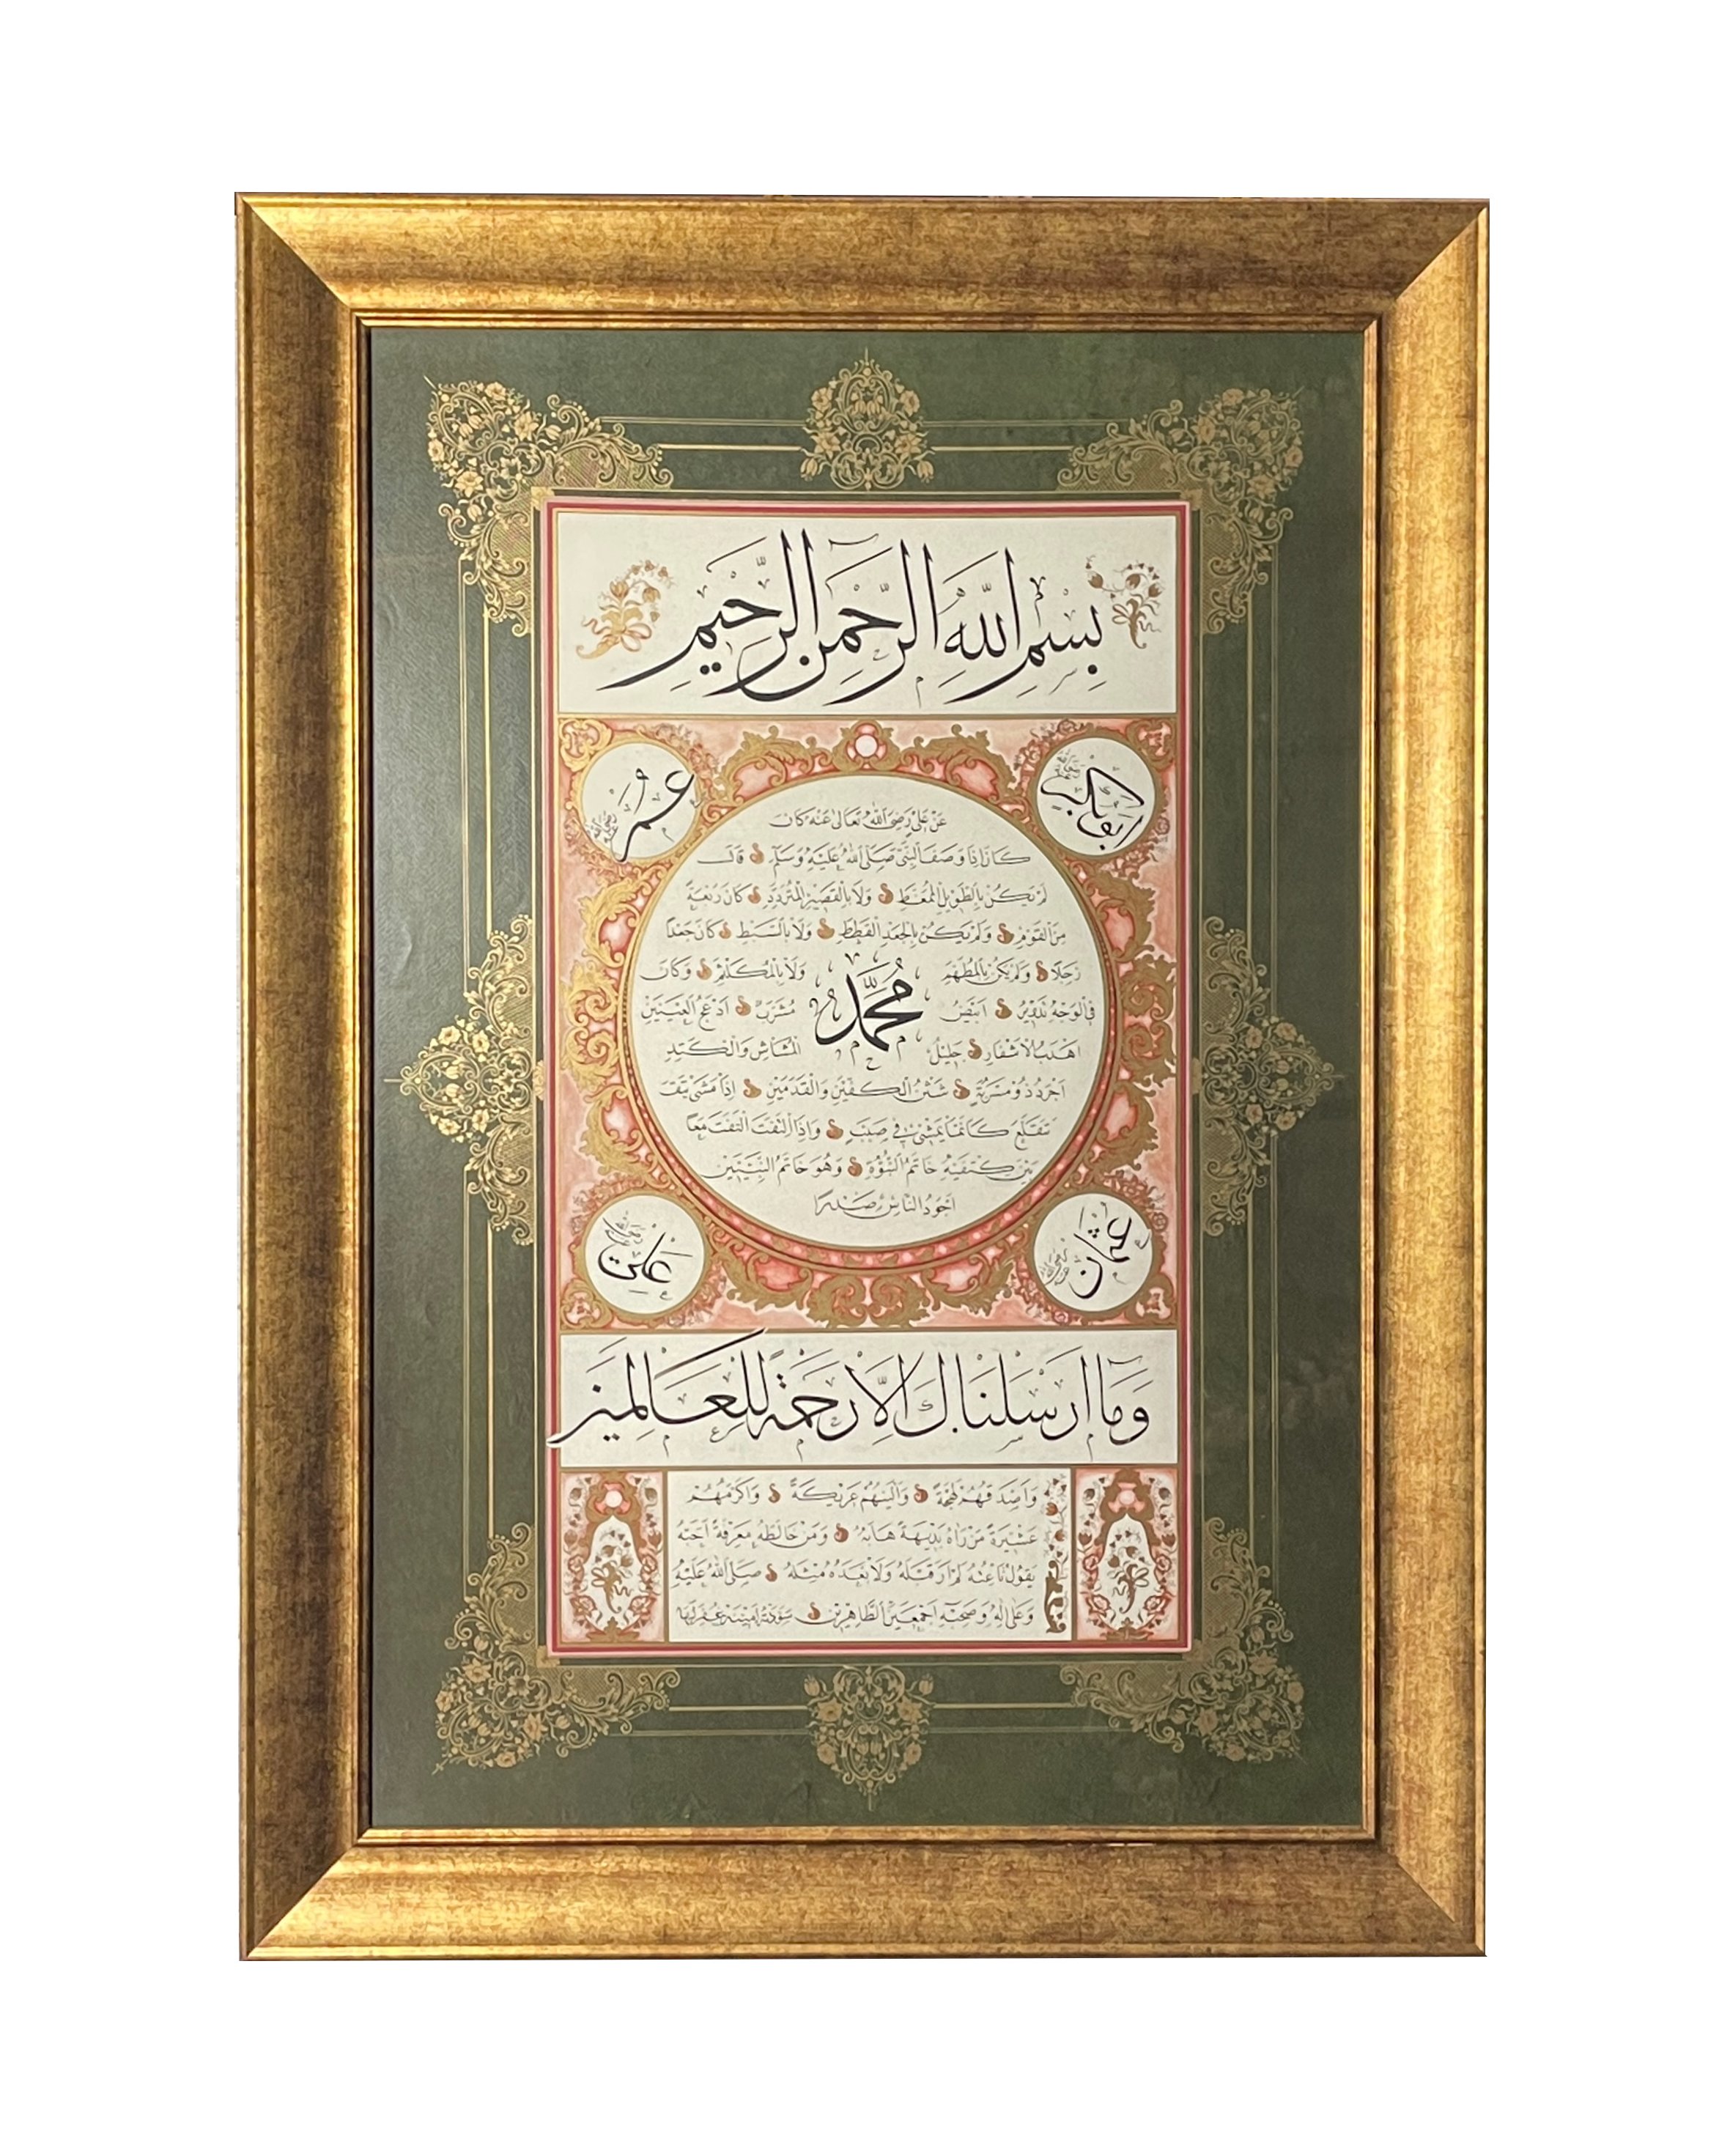 بِسْمِ اللّٰهِ الرَّحْمٰنِ الرَّحِيْمِ
ابُوبَكْر رضى الله تعالى عنه
عُمَر رضى الله عنه
عَنْ عَلِيٍّ رَضِيَ اللهُ تَعَالٰى عَنْهُ كَانَ
كَانَ اِذَا وَصَفَ النَّبِيَّ صَلَّى اللهُ عَلَيْهِ وَسَلَّمَ قَالَ
لَمْ يَكُنْ بِالطَّوِيْلِ الْمُمَّغِطِ وَلَا بِالْقَصِيْرِ الْمُتَرَدِّدِ كَانَ رَبْعَةً
مِنَ الْقَوْمِ وَلَمْ يَكُنْ بِالْجَعْدِ الْقَطَطِ وَلَا بِالسَّبْطِ كَانَ جَعْدًا
رَجِلًا وَلَمْ يَكُنْ بِالْمُطَهَّمِ وَلَا بِالْمُكَلْثَمِ وَكَانَ
مُحَمَّد
فِي الْوَجْهِ تَدْوِيْرٌ اَبْيَضُ مُشْرَبٌ اَدْعَجُ الْعَيْنَيْنِ
اَهْدَبُ الْاَشْفَارِ جَلِيْلُ الْمُشَاشِ وَالْكَتَدِ
اَجْرَدُ ذُو مَسْرُبَةٍ شَثْنُ الْكَفَّيْنِ وَالْقَدَمَيْنِ اِذَا مَشٰى يَتَقَ
تَقَلَّعَ كَاَنَّمَا يَمْشِي فِي صَبَبٍ وَاِذَا الْتَفَتَ الْتَفَتَ مَعًا
بَيْنَ كَتِفَيْهِ خَاتَمُ النُّبُوَّةِ وَهُوَ خَاتَمُ النَّبِيِّيْنَ
اَجْوَدُ النَّاسِ صَدْرًا
عُثْمَان رضى الله عنه
عَلِي رضى الله عنه
وَمَا اَرْسَلْنَاكَ اِلَّا رَحْمَةً لِلْعَالَمِيْنَ
وَاَصْدَقُهُمْ لَهْجَةً وَاَلْيَنُهُمْ عَرِيْكَةً وَاَكْرَمُهُمْ
عَشِيْرَةً مَنْ رَاٰهُ بَدِيْهَةً هَابَهُ وَمَنْ خَالَطَهُ مَعْرِفَةً اَحَبَّهُ
يَقُوْلُ نَاعِتُهُ لَمْ اَرَ قَبْلَهُ وَلَا بَعْدَهُ مِثْلَهُ صَلَّى اللهُ عَلَيْهِ
وَعَلٰى اٰلِهِ وَصَحْبِهِ اَجْمَعِيْنَ الطَّاهِرِيْنَ